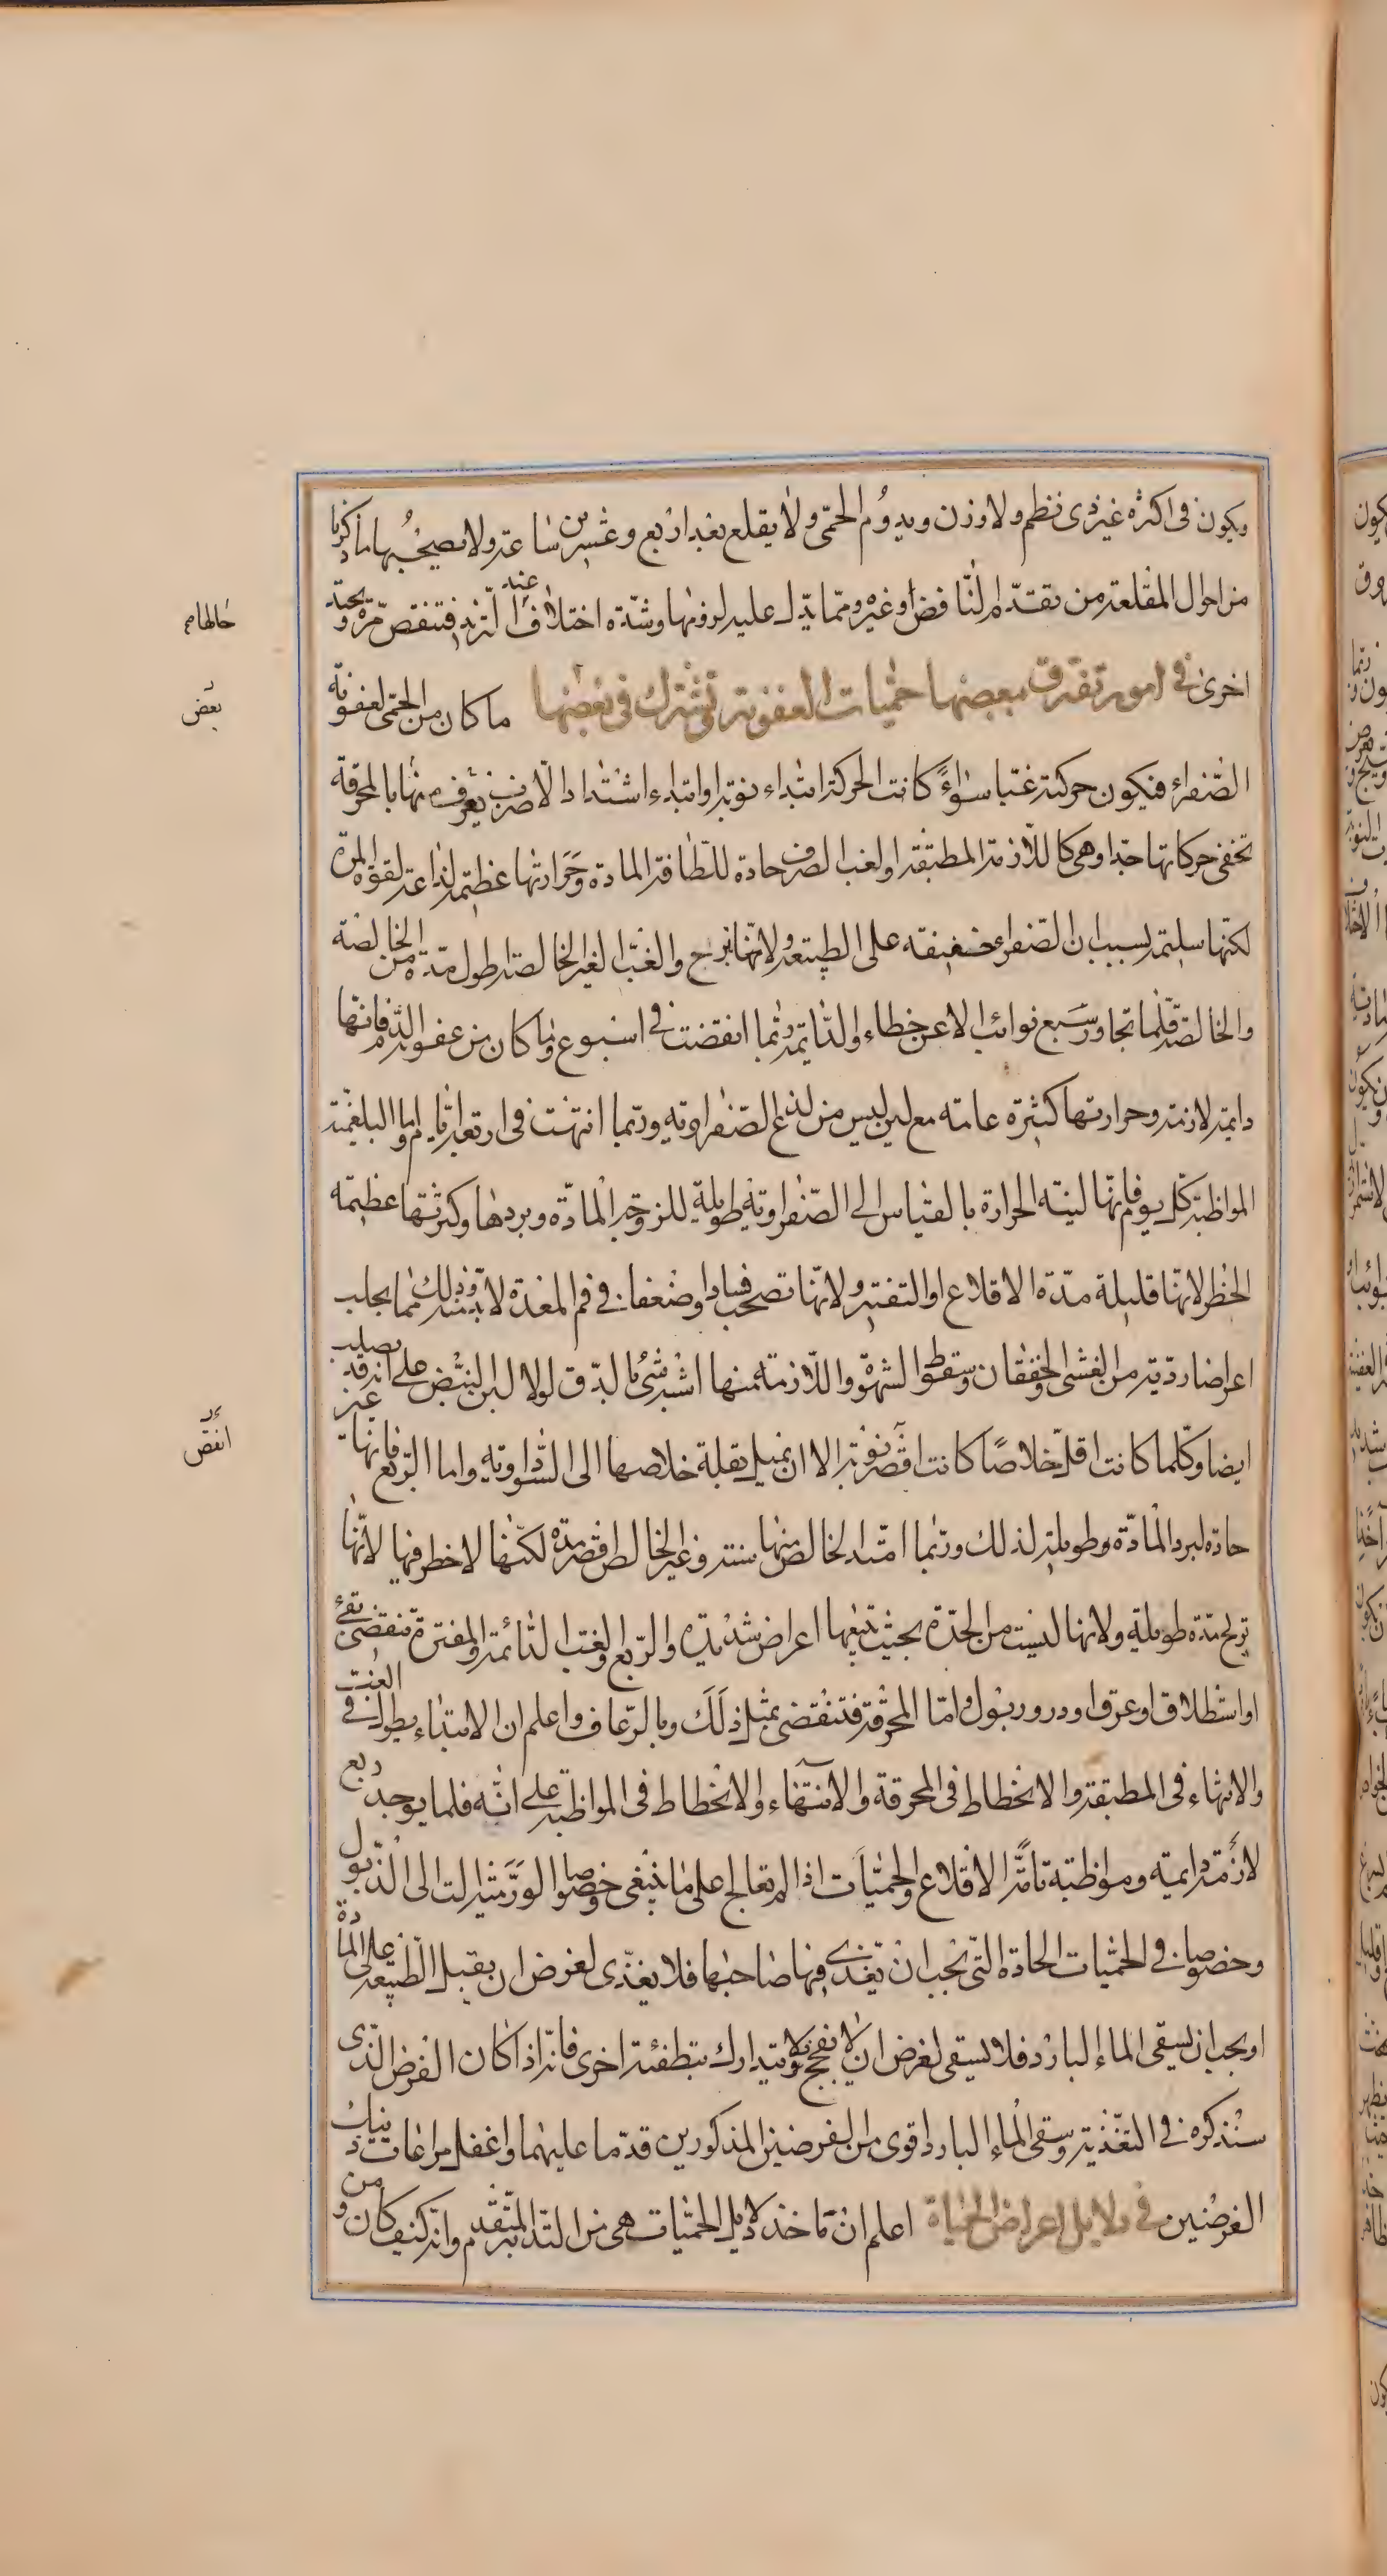 ويكون فى اكثره غير ذى نظم ولا وزن ويدوم الحمى ولا يقلع بعد اربع وعشرين ساعة ولا يصحبها ما ذكرنا
من احوال المقلعة من تقدم النافض او غيره ومما يدل عليه لزومها وشدة اختلاف عند التزيد فتنقص مرة ويحتد
اخرى فى امور تفترق ببعضها حميات العفونة وتشترك فى بعضها ما كان من الحمى لعفونة
الصفراء فيكون حركته غبا سواء كانت الحركة ابتداء نوبة او ابتداء اشتداد الا صرف يعرف منها بالمحرقة
تخفى حركاتها جدا وهى كاللازمة المطبقة والغب الصرف حادة للطافة المادة وحرارتها عظيمة لذاعة لقوة المرة
لكنها سليمة بسبب ان الصفراء خفيفة على الطبيعة ولانها تريح والغب الغير الخالصة اطول مدة من الخالصة
والخالصة قلما تجاوز سبع نوائب الا عن خطاء والدايمة ربما انقضت فى اسبوع وما كان من عفونة الدم فانها
دايمة لازمة وحرارتها كثيرة عامة مع لين ليس من لذع الصفراوية وربما انتهت فى اربعة ايام واما البلغمية
المواظبة كل يوم فانها لينة الحرارة بالقياس الى الصفراوية طويلة للزوجة المادة وبردها وكثرتها عظيمة
الخطر لانها قليلة مدة الاقلاع او التفتير ولانها تصحب فسادا وضعفا فى فم المعدة لا بد منه وذلك مما يجلب
اعراضا ردية من الغشى والخفقان وسقوط الشهوة واللازمة منها اشبه شئ بالدق لولا لين النبض على انه قد يصلب
ايضا وكلما كانت اقل خلاصا كانت اقصر نوبة الا ان يميل بقلة خلاصها الى السوداوية واما الربع فانها غير
حادة لبرد المادة وطويلة لذلك وربما امتد الخالص منها سنة وغير الخالص اقصر مدة لكنها لا خطر فيها لانها
تريح مدة طويلة ولانها ليست من الحدة بحيث يتبعها اعراض شديدة والربع والغب الدائمة والمفترة تنقضى بقئ
او استطلاق او عرق او درور بول واما المحرقة فتنقضى بمثل ذلك وبالرعاف واعلم ان الابتداء يطول فى الغب
والانتهاء فى المطبقة والانحطاط فى المحرقة والانتهاء والانحطاط فى المواظبة على انه قلما يوجد ربع
لازمة دايمة ومواظبة تامة الاقلاع والحميات اذا لم تعالج على ما ينبغى وخصوصا الورمية الت الى الذبول
وخصوصا فى الحميات الحادة التى يجب ان يتغذى فيها صاحبها فلا يغذى لغرض ان يقبل الطبيعة على المادة
او يجب ان يسقى الماء البارد فلا يسقى لغرض ان لا يفجج ولا يتدارك بتطفئة اخرى فانه اذا كان الغرض الذى
سنذكره فى التغذية وسقى الماء البارد اقوى من الغرضين المذكورين قدما عليهما واغفل مراعات ذينك
الغرضين فى دلايل اعراض الحميات اعلم ان ماخذ دلايل الحميات هى من التدابير المتقدم وانه كيف كان ومن
حالها م
بعض
انقص